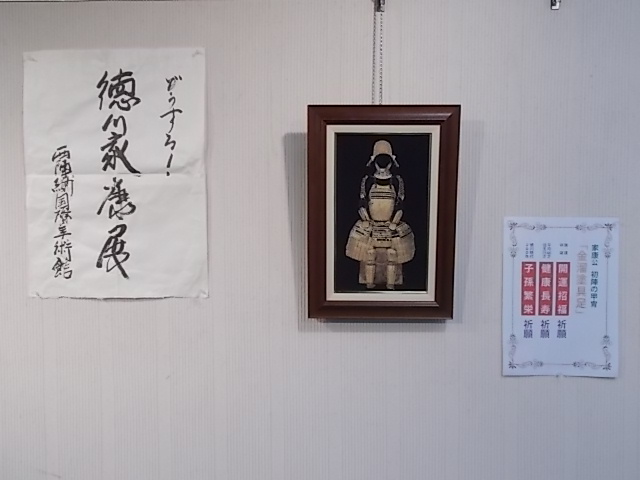 どうする!
徳川家康展
西陣織国際美術館
家康公 初陣の甲冑
「金溜塗具足」
開運招福 祈願
健康長寿 祈願
子孫繁栄 祈願